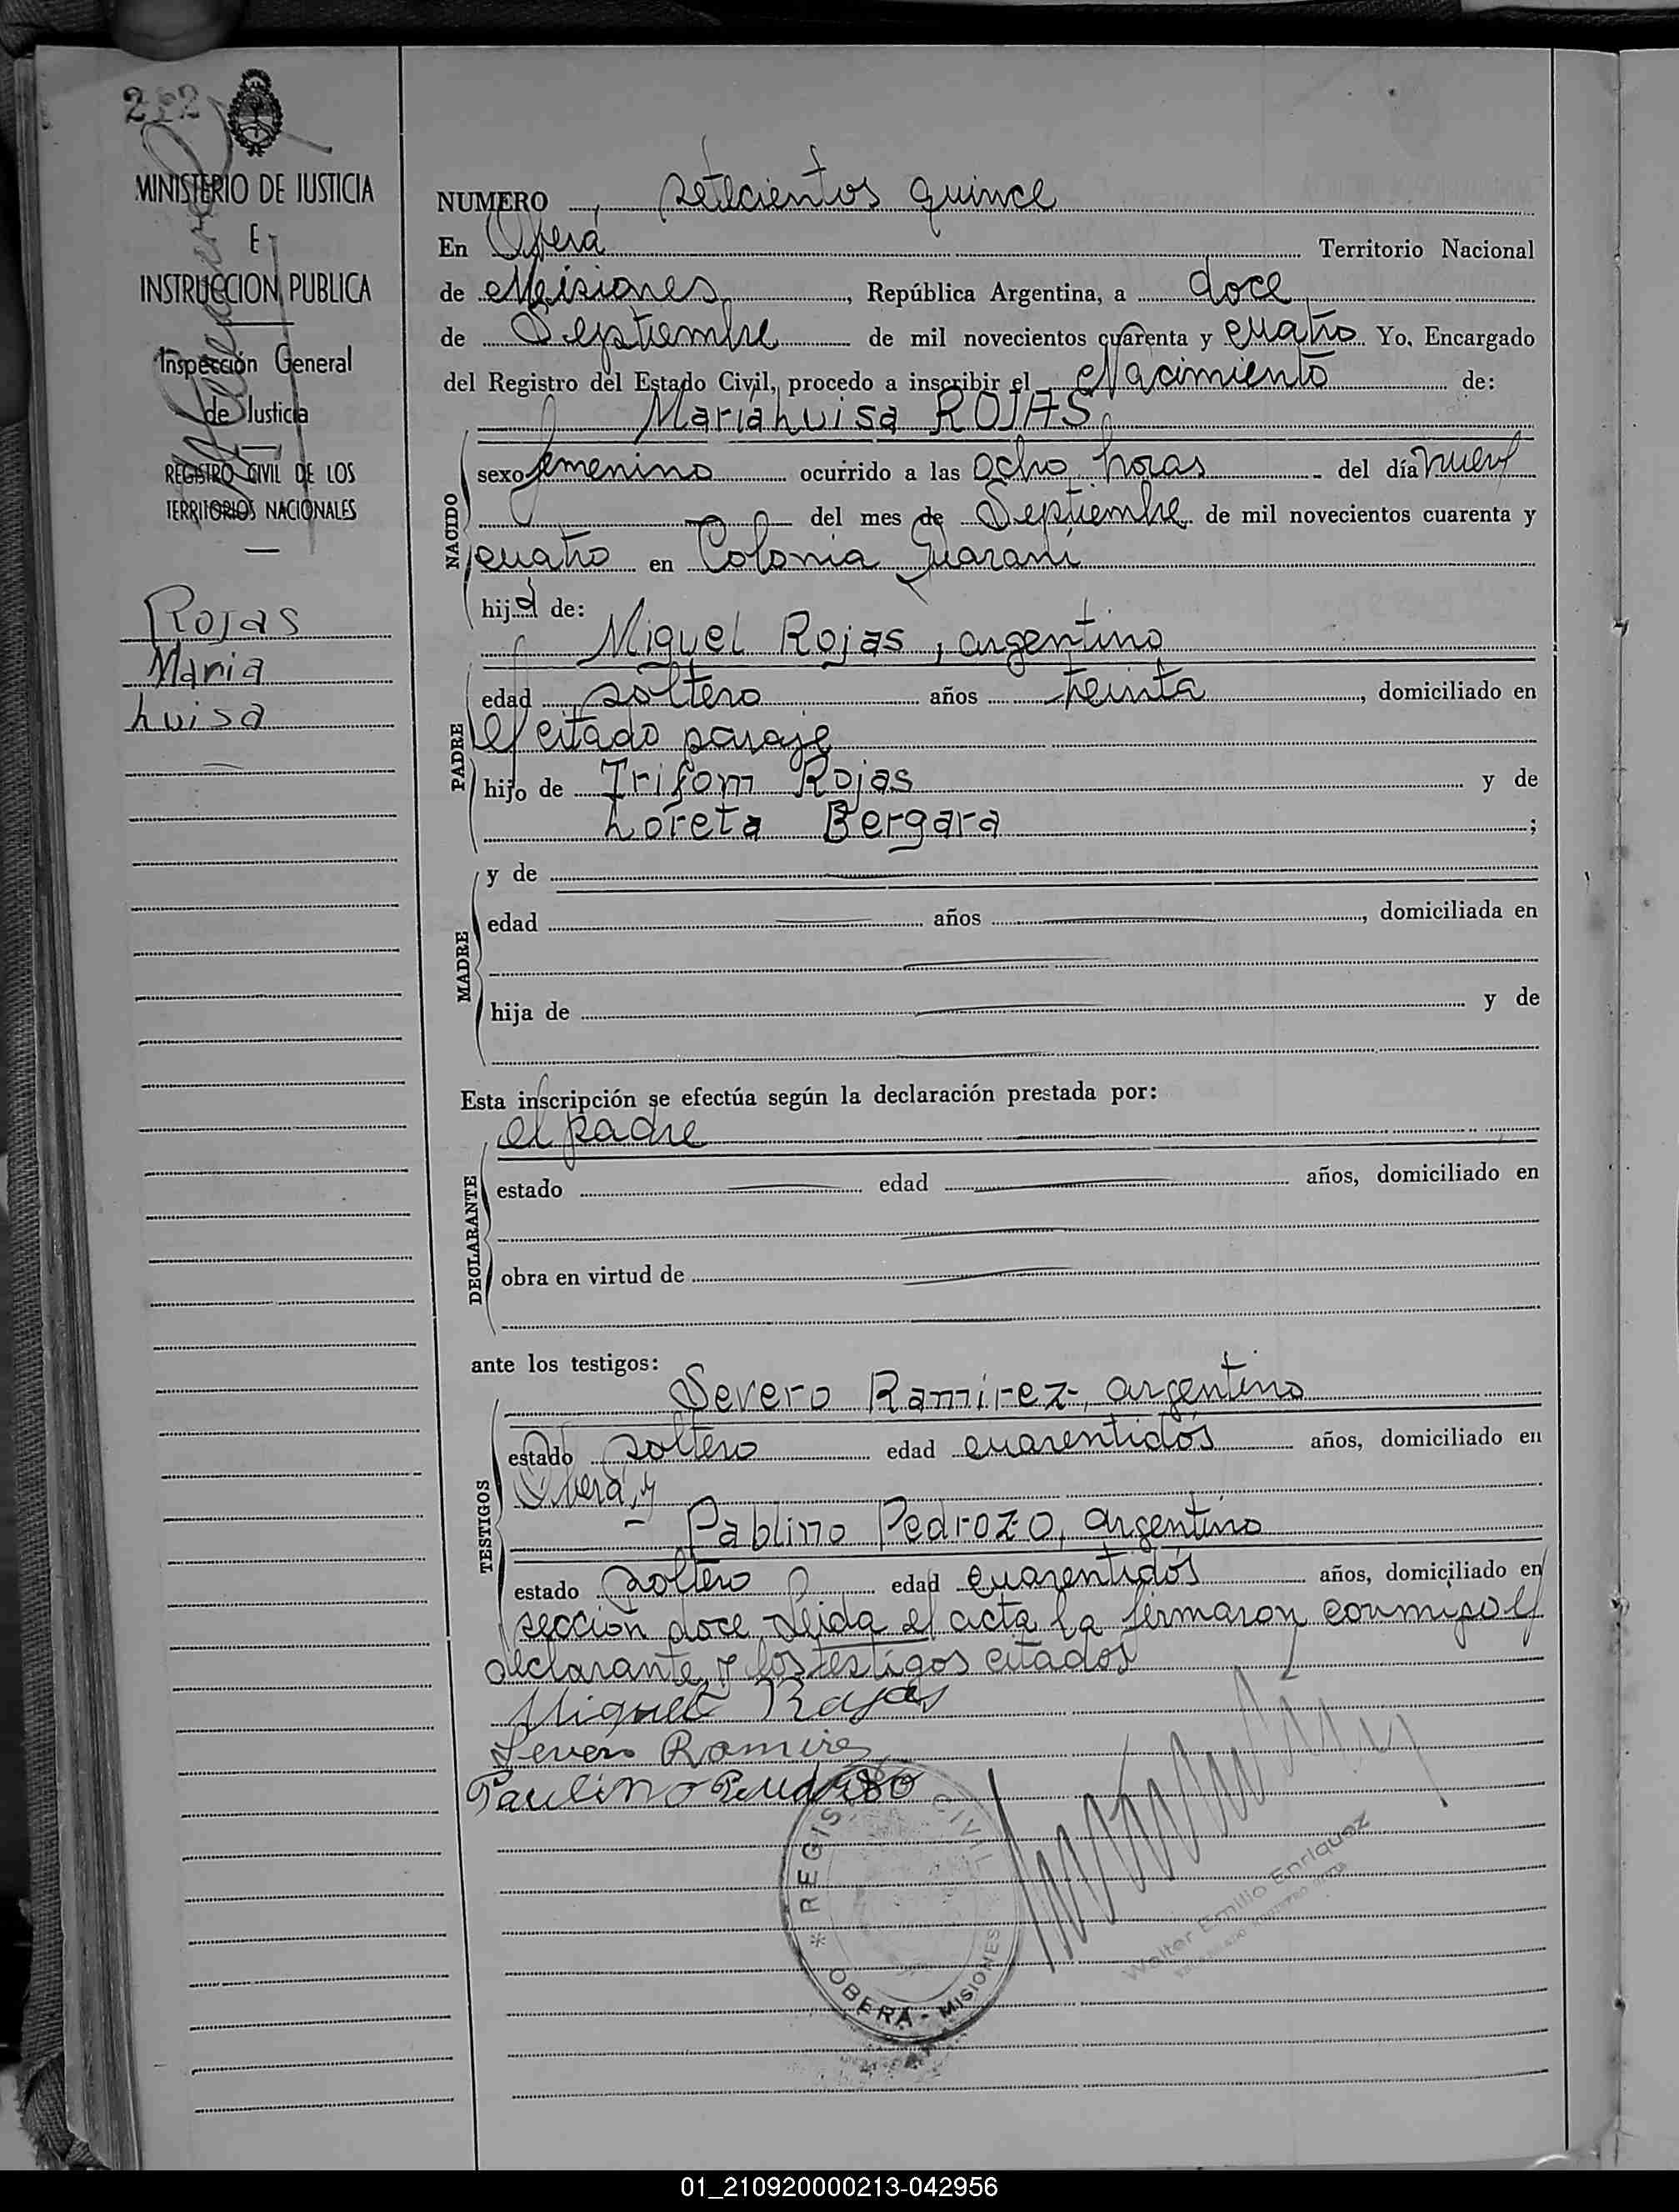 MINISTERIO DE JUSTICIA
E
INSTRUCCION PUBLICA
Inspección General
de Justicia
REGISTRO CIVIL DE LOS
TERRITORIOS NACIONALES
Rojas
Maria
Luisa
NUMERO setecientos quince
En Oberá Territorio Nacional
de Misiones, República Argentina, a doce
de Septiembre de mil novecientos cuarenta y cuatro Yo, Encargado
del Registro del Estado Civil, procedo a inscribir el Nacimiento de:
Maria Luisa ROJAS
NACIDO
sexo femenino ocurrido a las ocho horas del día nueve
del mes de Septiembre de mil novecientos cuarenta y
cuatro en Colonia Guaraní
hija de:
Miguel Rojas, argentino
PADRE
edad soltero años treinta, domiciliado en
el citado paraje
hijo de Trifom Rojas y de
Loreta Bergara ;
MADRE
y de
edad años , domiciliada en
hija de y de
Esta inscripción se efectúa según la declaración prestada por:
el padre
DECLARANTE
estado edad años, domiciliado en
obra en virtud de
ante los testigos:
Severo Ramirez, argentino
TESTIGOS
estado soltero edad cuarentidós años, domiciliado en
Oberá, y
Pablino Pedrozo, argentino
estado soltero edad cuarentidós años, domiciliado en
sección doce Leida el acta la firmaron conmigo el
declarante y los testigos citados
Miguel Rojas
Severo Ramires
Paulino
REGISTRO CIVIL
OBERA - MISIONES
Walter Emilio Enriquez
01_210920000213-042956